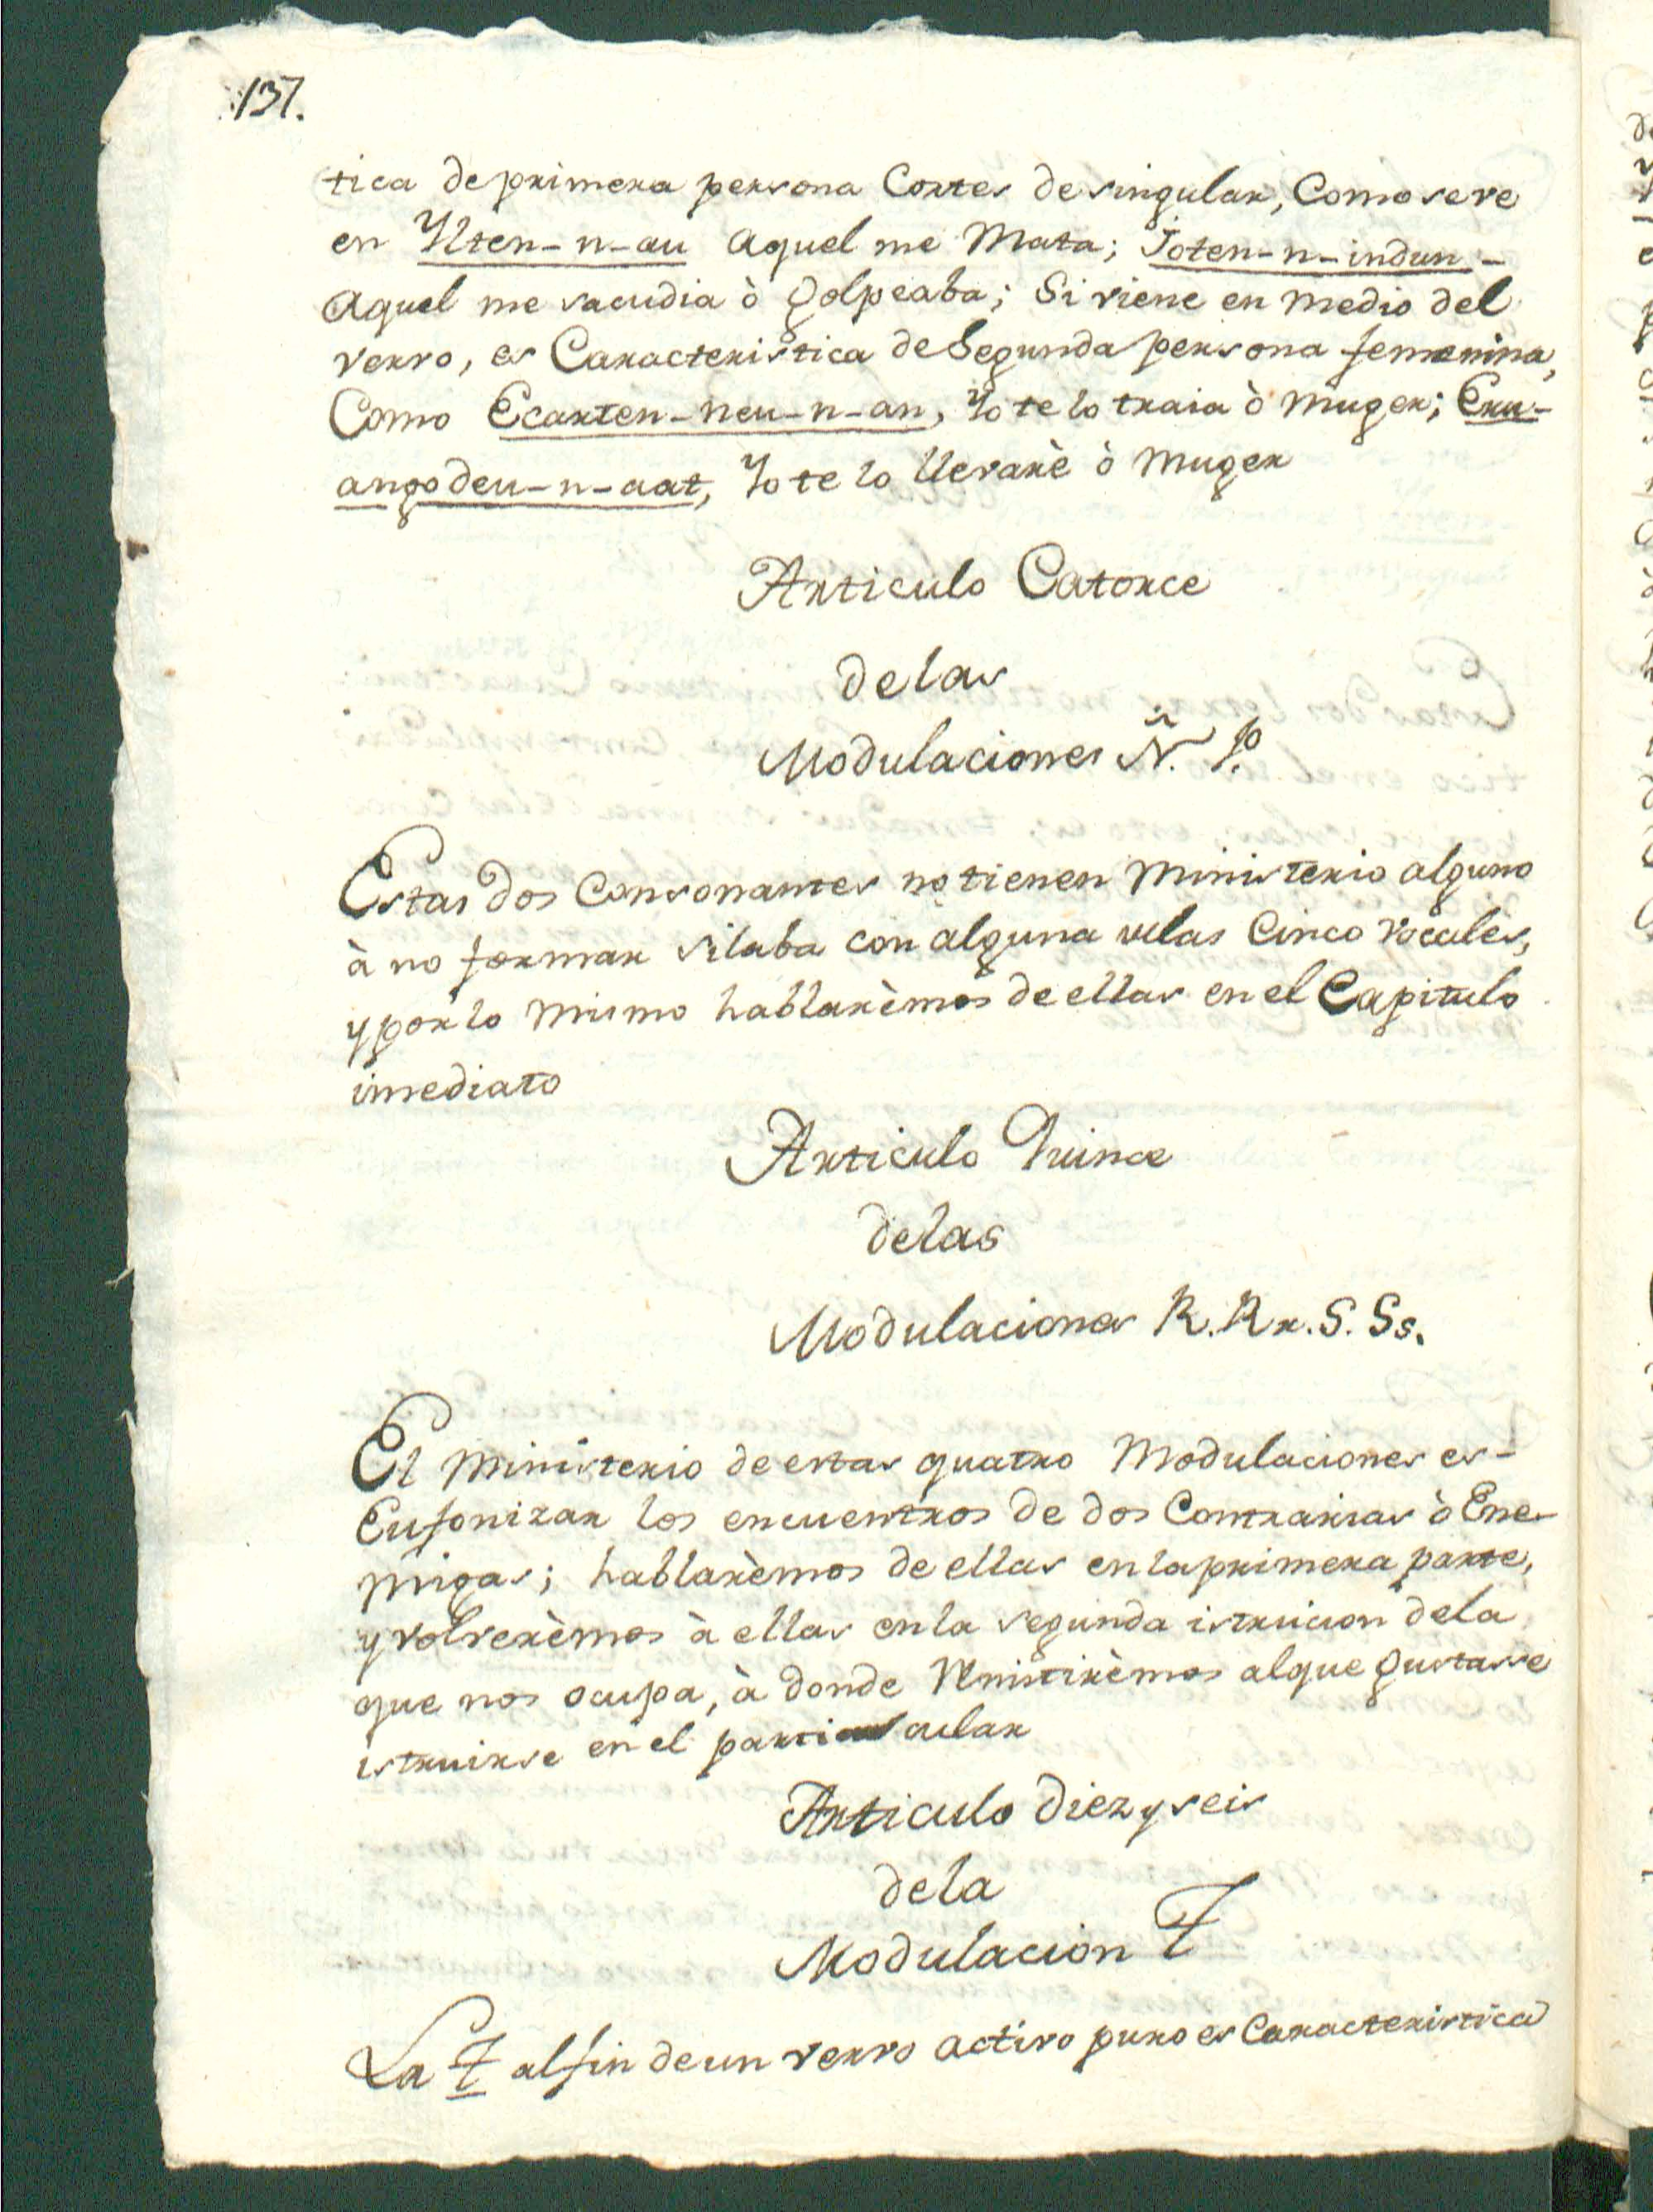 137.
tica de primera persona Cortes de singular, Como se ve
en Ylten-n-au aquel me Mata; Joten-n-indun-
aquel me sacudia ò golpeaba; Si viene en medio del
vervo, es Caracteristica de Segunda persona femenina,
Como Ecarten-neu-n-an, Yo te lo traia ò muger; Eru-
angodeu-n-aat, Yo te lo llevarè ò muger
Articulo Catorce
de las
Modulaciones Ñ. P.
Estas dos Consonantes no tienen ministerio alguno
à no formar silaba con alguna de las Cinco vocales,
y por lo mismo hablarèmos de ellas en el Capitulo
imediato
Articulo Quince
de las
Modulaciones R. Rr. S. Ss.
El ministerio de estas quatro Modulaciones es-
Eufonizar los encuentros de dos Contrarias ò Ene-
migas; hablarèmos de ellas en la primera parte,
y volverèmos à ellas en la segunda istrucion de la
que nos ocupa, à donde Remitirèmos al que gustasse
istruirse en el particular
Articulo Diez y seis
de la
Modulacion T
La T al fin de un vervo activo puro es Caracteristica